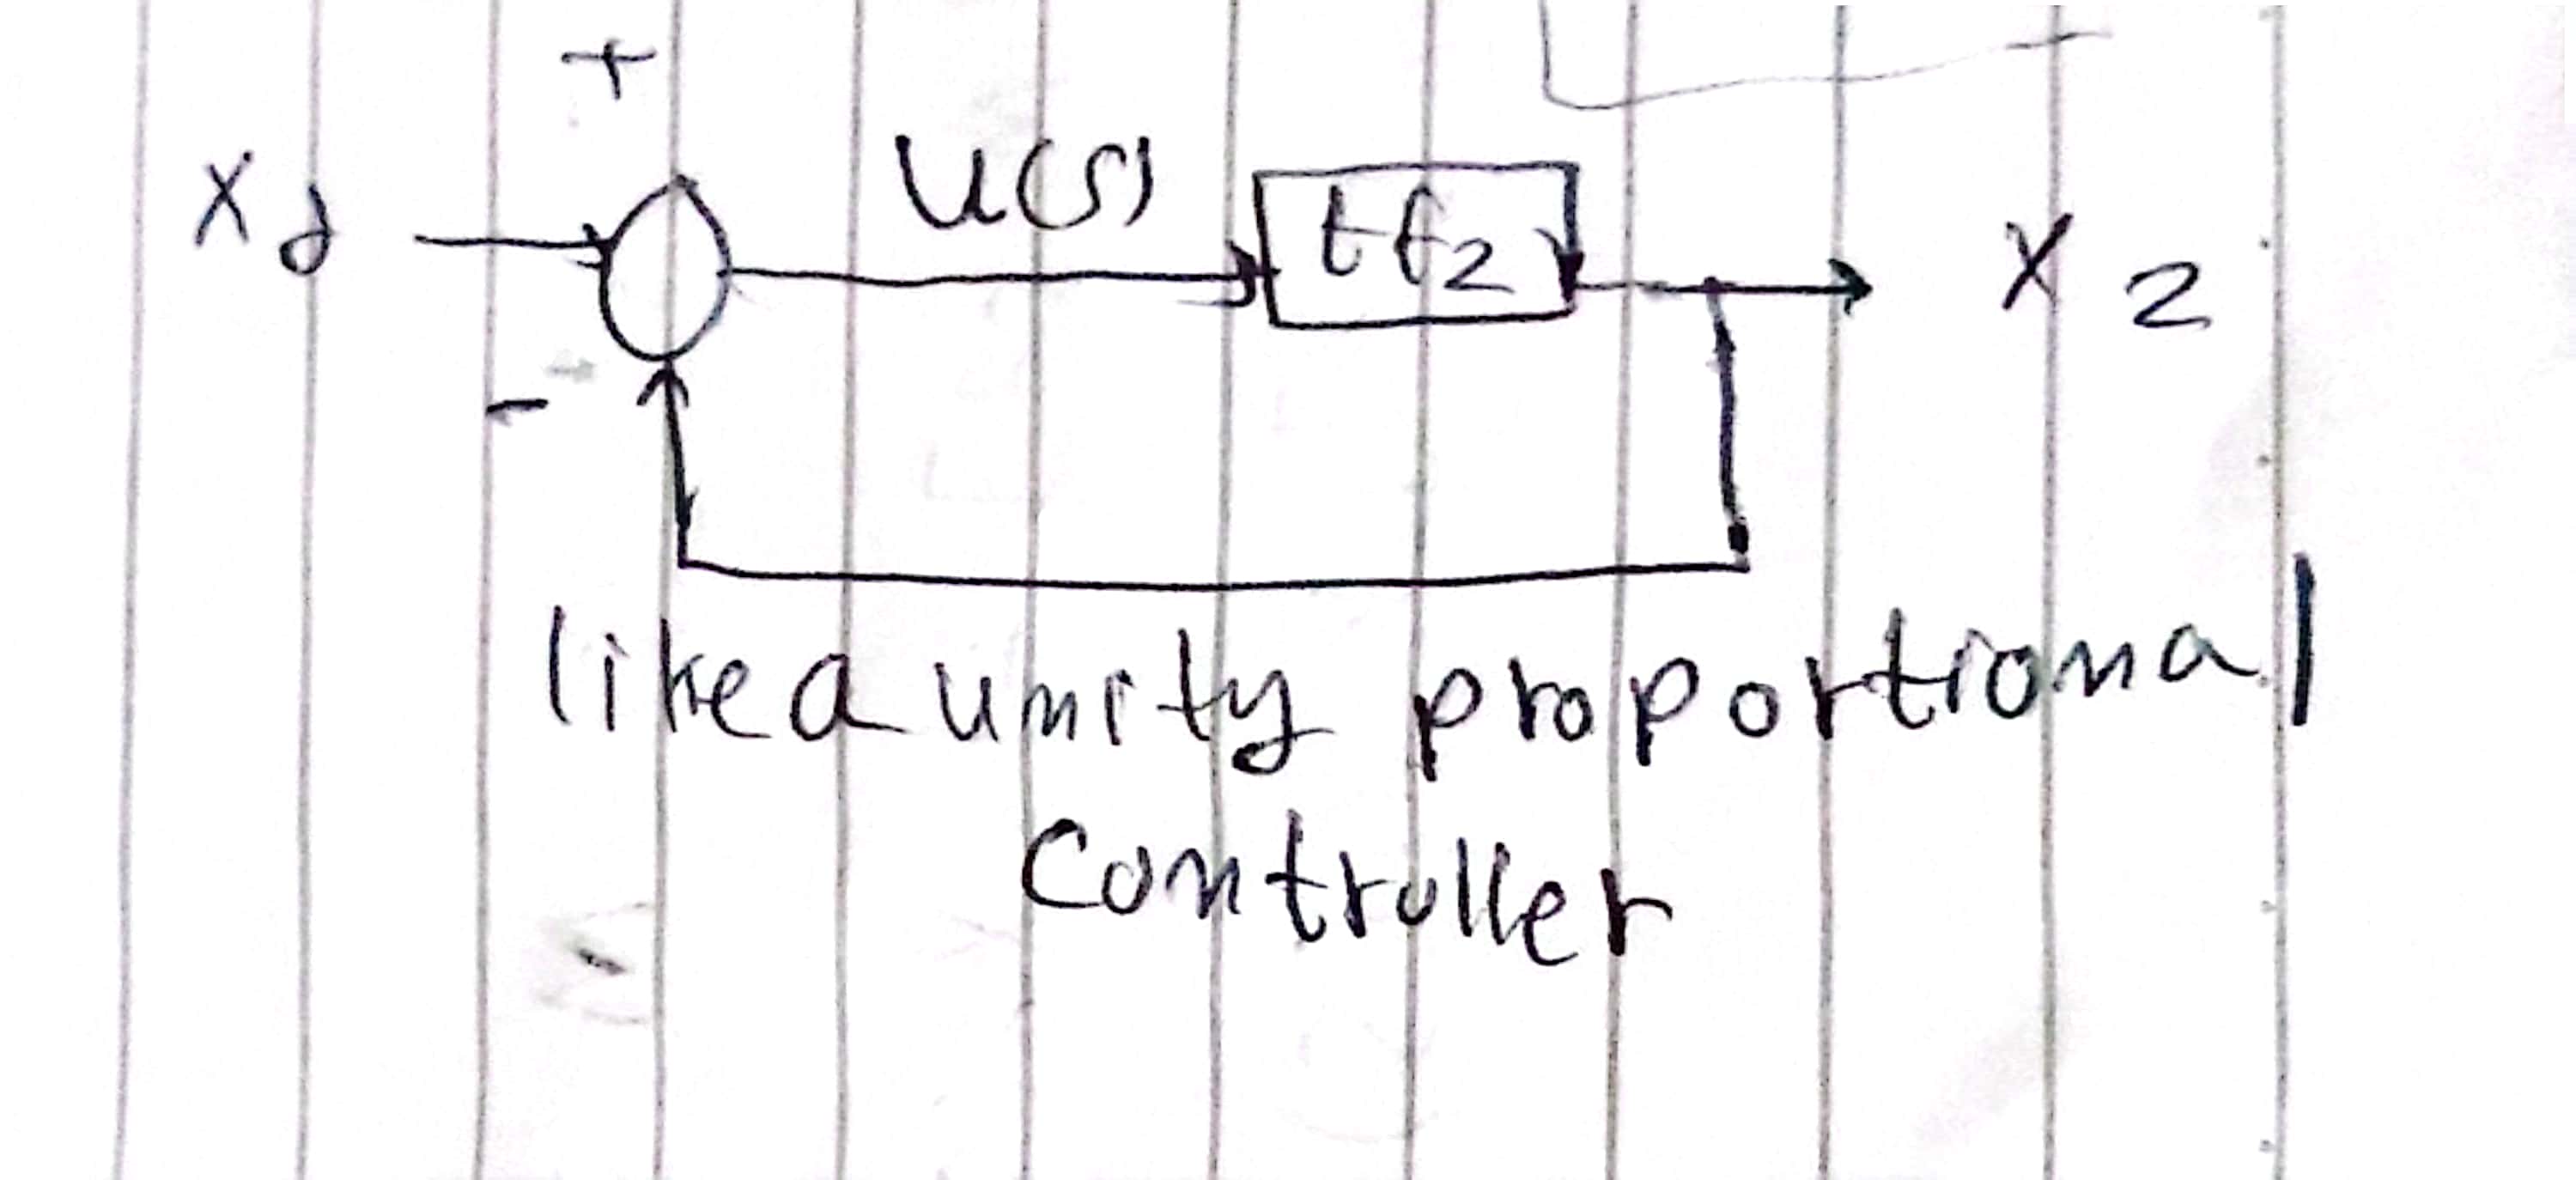 +
Xd
U(s)
tf2
X2
-
like a unity proportional
Controller